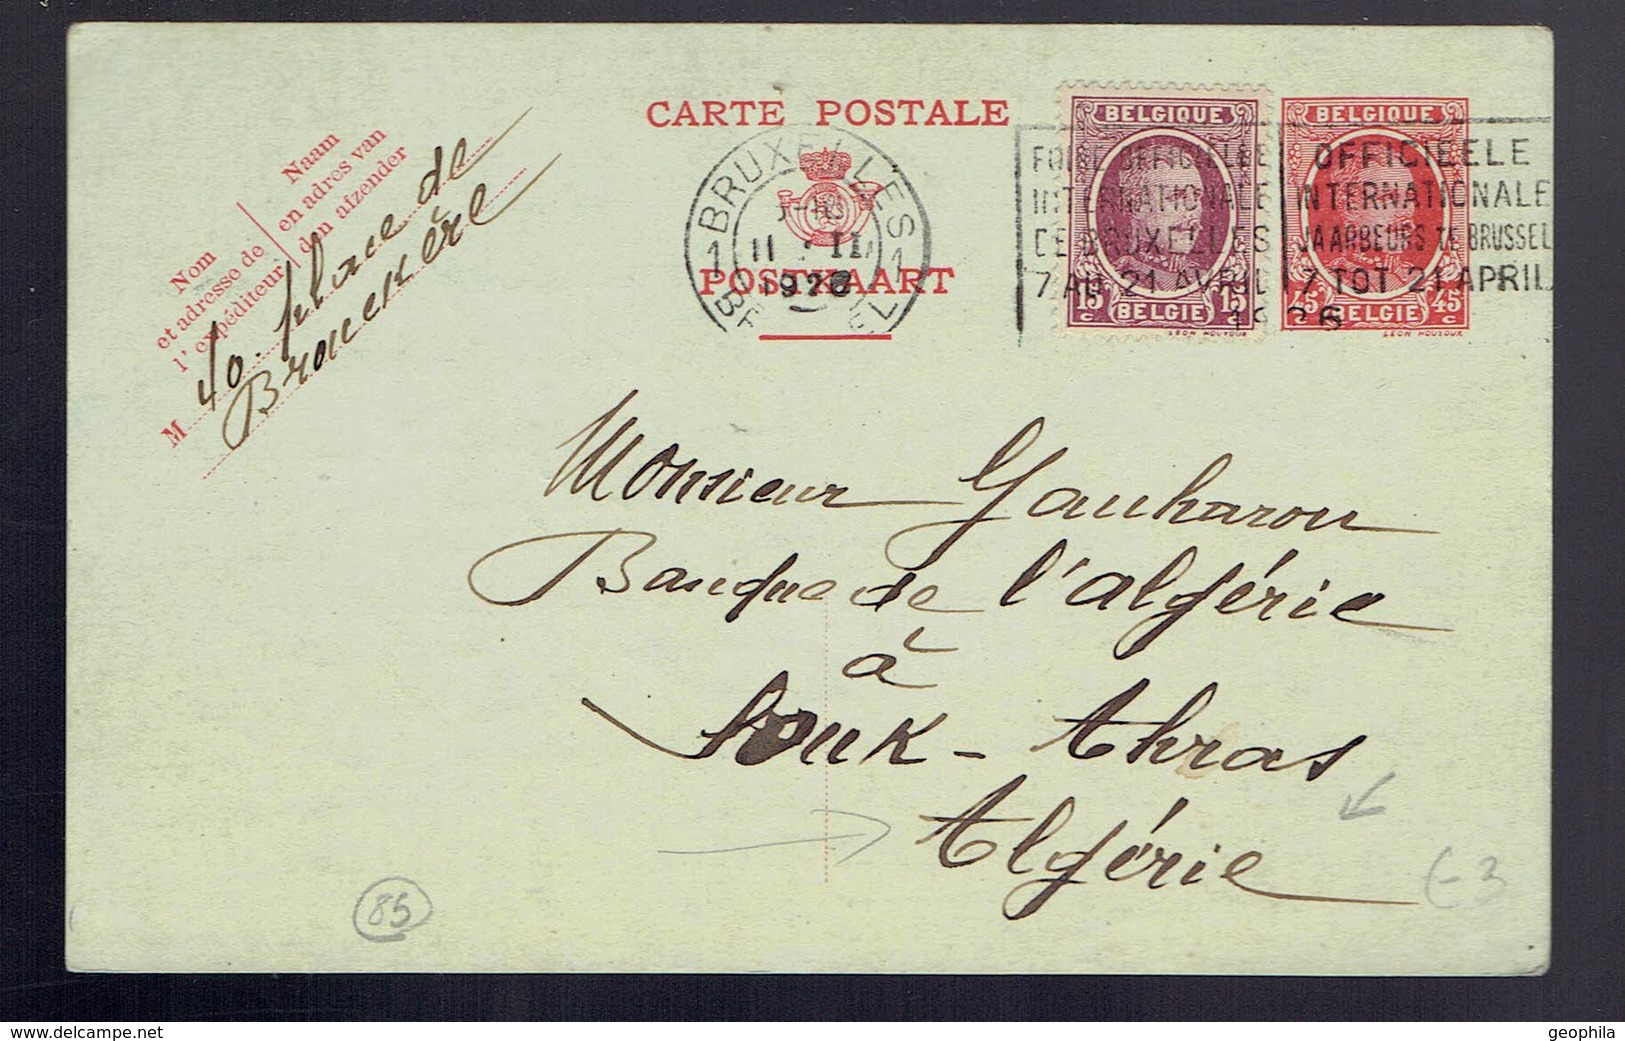 CARTE POSTALE
POSTKAART
Nom
et adresse de
l'expéditeur
Naam
en adres van
den afzender
M 40. place de
Brouckère
BRUXELLES
1 1
11 II
1926
BELGIQUE
15 c 15 c
BELGIE
LEON HOUYOUX
BELGIQUE
45 c 45 c
BELGIE
LEON HOUYOUX
FOIRE OFFICIELLE
INTERNATIONALE
DE BRUXELLES
7 AU 21 AVRIL
OFFICIEELE
INTERNATIONALE
JAARBEURS TE BRUSSEL
7 TOT 21 APRIL
1926
Monsieur Gauharou
Banque de l'algérie
à
Souk-Ahras
Algérie
85
3
www.delcampe.net
geophila